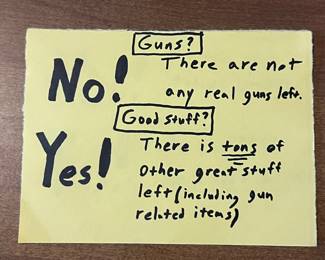 Guns?
No! There are not
any real guns left.
Good stuff?
Yes! There is tons of
other great stuff
left (including gun
related items)